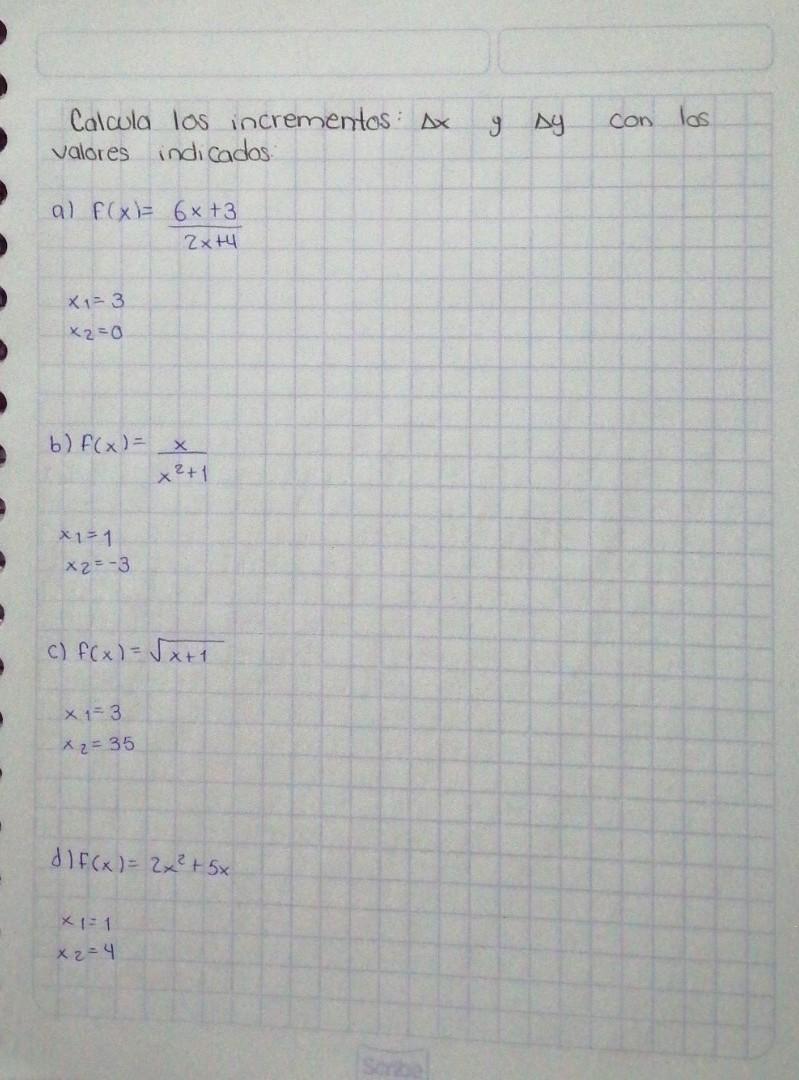 Calcula los incrementos: Δx y Δy con los
valores indicados:
a) f(x)= 6x+3
2x+4
x1=3
x2=0
b) f(x)= x
x²+1
x1=1
x2=-3
c) f(x)=√x+1
x1=3
x2=35
d) f(x)= 2x²+5x
x1=1
x2=4
Scribe